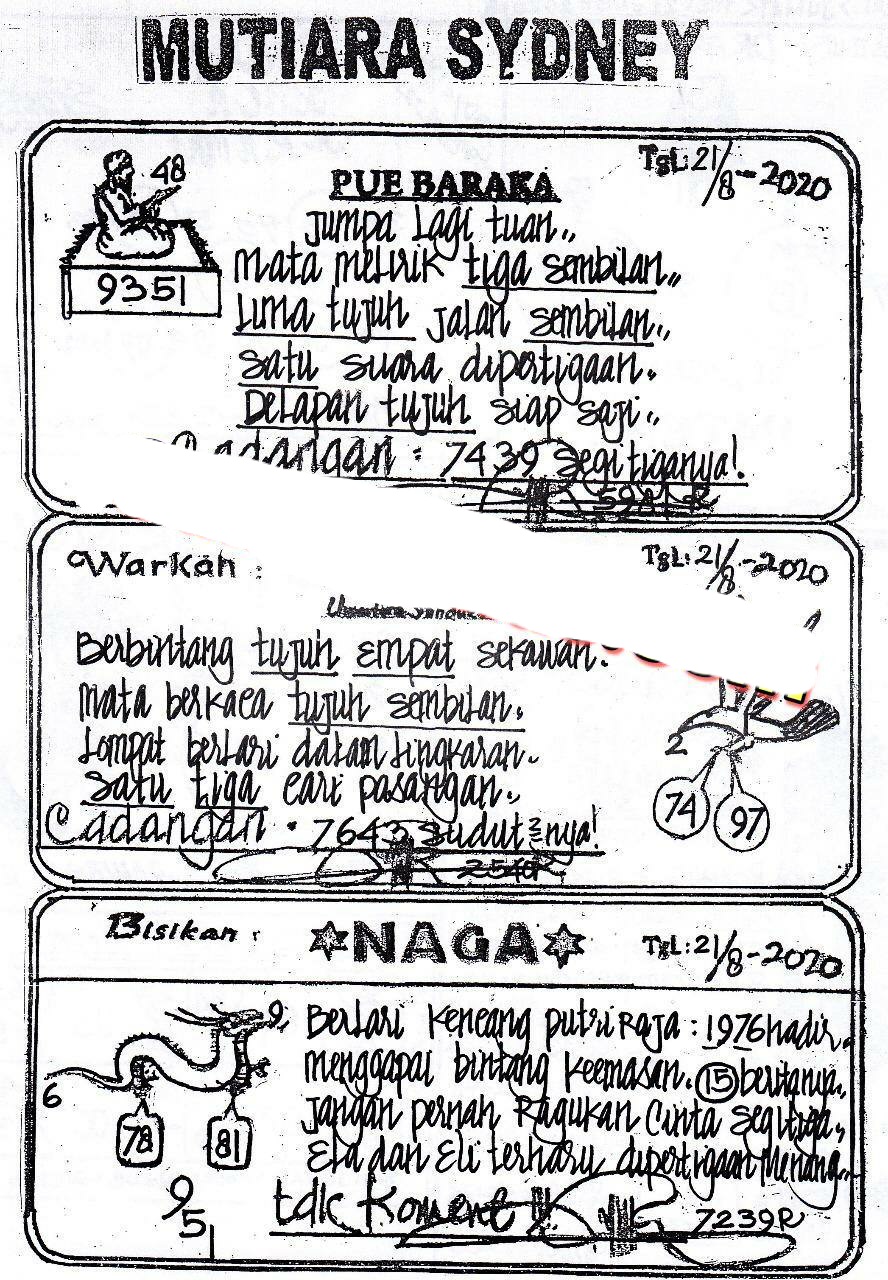 MUTIARA SYDNEY
48
9351
PUE BARAKA
Tgl: 21/8-2020
Jumpa lagi tuan..
Mata melirik tiga sembilan..
Lima tujuh jalan sembilan..
Satu suara dipertigaan.
Delapan tujuh siap saji..
Cadangan : 7439 segi tiganya!
Warkah :
Tgl: 21/8-2020
Berbintang tujuh empat sekawan.
Mata berkaca tujuh sembilan.
Lompat berlari dalam lingkaran.
Satu tiga cari pasangan..
Cadangan : 7643 sudut nya!
2540R
2
74
97
Bisikan :
NAGA
Tgl: 21/8-2020
9
6
78
81
9
5
1
Berlari kencang putri Raja : 1976 hadir.
menggapai bintang keemasan. 15 beritanya..
Jangan pernah Ragukan Cinta segitiga..
Ela dan Eli terharu dipertigaan menang..
tdk Koment !!
7239R